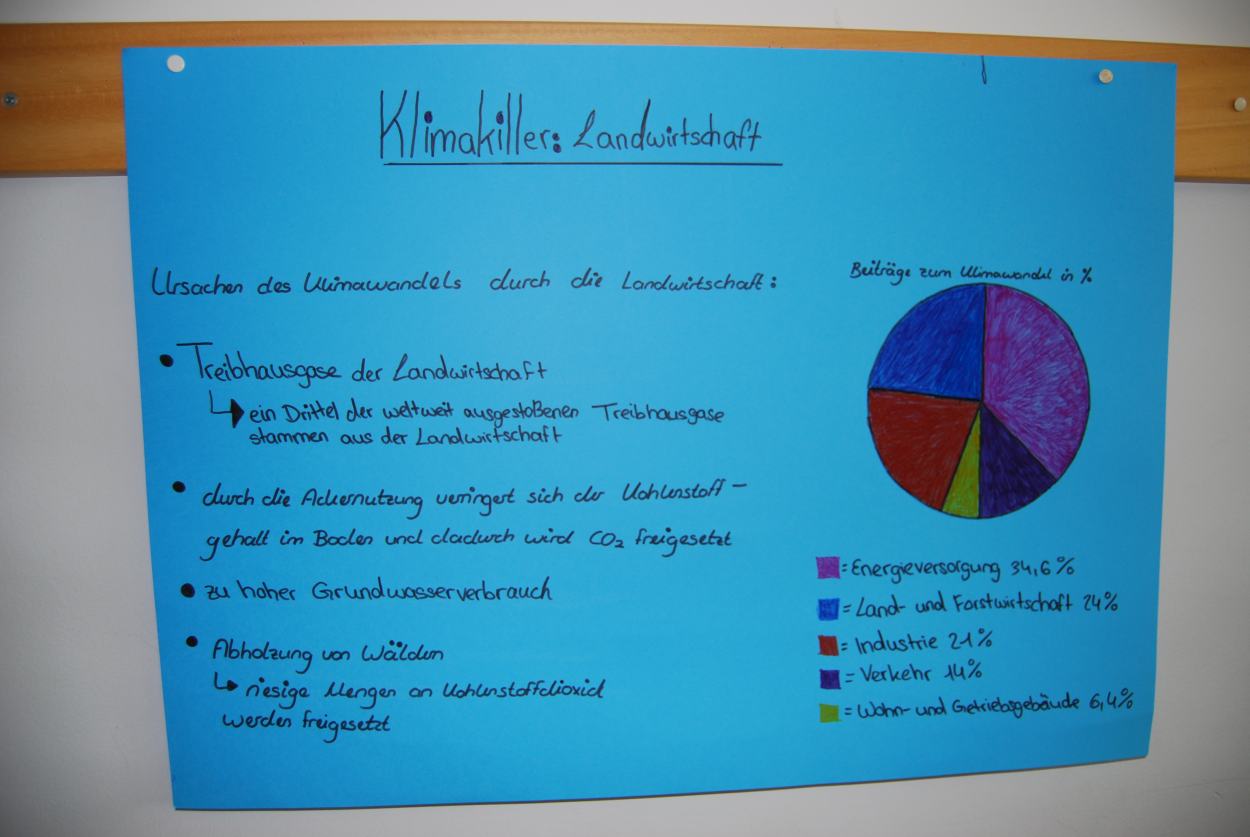 Klimakiller: Landwirtschaft
Ursachen des Klimawandels durch die Landwirtschaft:
• Treibhausgase der Landwirtschaft
ein Drittel der weltweit ausgestoßenen Treibhausgase
stammen aus der Landwirtschaft
• durch die Ackernutzung verringert sich der Kohlenstoff-
gehalt im Boden und dadurch wird CO₂ freigesetzt
• zu hoher Grundwasserverbrauch
• Abholzung von Wäldern
riesige Mengen an Kohlenstoffdioxid
werden freigesetzt
Beiträge zum Klimawandel in %
= Energieversorgung 34,6%
= Land- und Forstwirtschaft 24%
= Industrie 21%
= Verkehr 14%
= Wohn- und Getriebsgebäude 6,4%